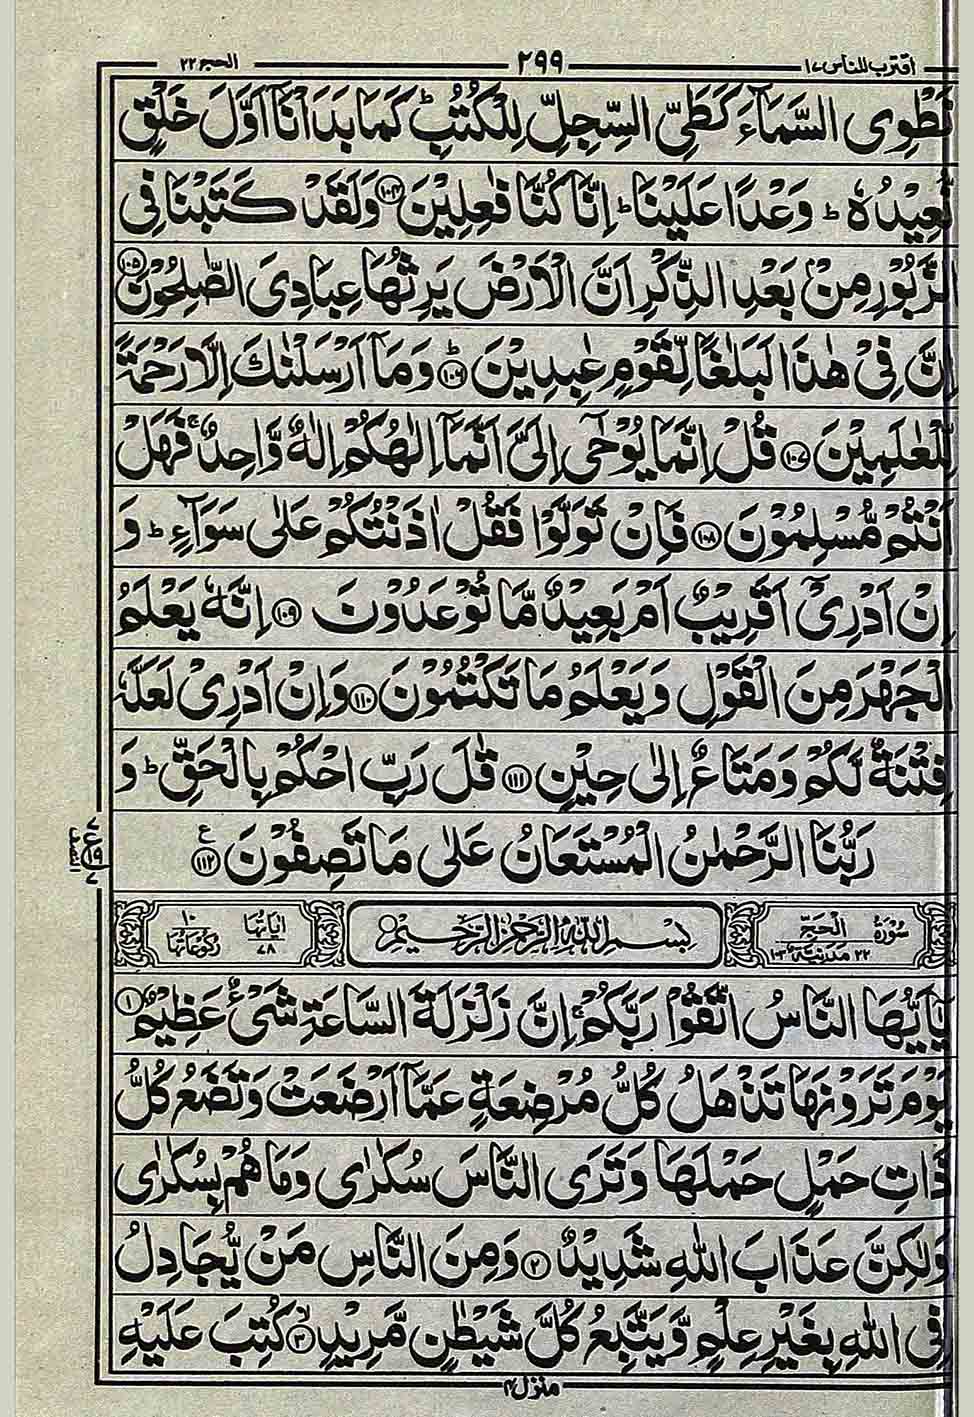 اقترب للناس ١٧
٢٩٩
الحج ٢٢
نَطْوِی السَّمَآءَ كَطَیِّ السِّجِلِّ لِلْكُتُبِ ؕ كَمَا بَدَاْنَاۤ اَوَّلَ خَلْقٍ
نُّعِیْدُهٗ ؕ وَعْدًا عَلَیْنَا ؕ اِنَّا كُنَّا فٰعِلِیْنَ ﴿۱۰۴﴾ وَلَقَدْ كَتَبْنَا فِی
الزَّبُوْرِ مِنْۢ بَعْدِ الذِّكْرِ اَنَّ الْاَرْضَ یَرِثُهَا عِبَادِیَ الصّٰلِحُوْنَ ﴿۱۰۵﴾
اِنَّ فِیْ هٰذَا لَبَلٰغًا لِّقَوْمٍ عٰبِدِیْنَ ﴿۱۰۶﴾ؕ وَمَاۤ اَرْسَلْنٰكَ اِلَّا رَحْمَةً
لِّلْعٰلَمِیْنَ ﴿۱۰۷﴾ قُلْ اِنَّمَا یُوْحٰۤی اِلَیَّ اَنَّمَاۤ اِلٰهُكُمْ اِلٰهٌ وَّاحِدٌ ۚ فَهَلْ
اَنْتُمْ مُّسْلِمُوْنَ ﴿۱۰۸﴾ فَاِنْ تَوَلَّوْا فَقُلْ اٰذَنْتُكُمْ عَلٰی سَوَآءٍ ؕ وَ
اِنْ اَدْرِیْۤ اَقَرِیْبٌ اَمْ بَعِیْدٌ مَّا تُوْعَدُوْنَ ﴿۱۰۹﴾ اِنَّهٗ یَعْلَمُ
الْجَهْرَ مِنَ الْقَوْلِ وَیَعْلَمُ مَا تَكْتُمُوْنَ ﴿۱۱۰﴾ وَاِنْ اَدْرِیْ لَعَلَّهٗ
فِتْنَةٌ لَّكُمْ وَمَتَاعٌ اِلٰی حِیْنٍ ﴿۱۱۱﴾ قٰلَ رَبِّ احْكُمْ بِالْحَقِّ ؕ وَ
رَبُّنَا الرَّحْمٰنُ الْمُسْتَعَانُ عَلٰی مَا تَصِفُوْنَ ﴿۱۱۲﴾ ع
سُوْرَةُ الْحَجِّ ٢٢ مَدَنِیَّةٌ ١٠٣
بِسْمِ اللّٰهِ الرَّحْمٰنِ الرَّحِیْمِ
اٰیَاتُهَا ٧٨
رُكُوْعَاتُهَا ١٠
یٰۤاَیُّهَا النَّاسُ اتَّقُوْا رَبَّكُمْ ۚ اِنَّ زَلْزَلَةَ السَّاعَةِ شَیْءٌ عَظِیْمٌ ﴿۱﴾
یَوْمَ تَرَوْنَهَا تَذْهَلُ كُلُّ مُرْضِعَةٍ عَمَّاۤ اَرْضَعَتْ وَتَضَعُ كُلُّ
ذَاتِ حَمْلٍ حَمْلَهَا وَتَرَی النَّاسَ سُكٰرٰی وَمَا هُمْ بِسُكٰرٰی
وَلٰكِنَّ عَذَابَ اللّٰهِ شَدِیْدٌ ﴿۲﴾ وَمِنَ النَّاسِ مَنْ یُّجَادِلُ
فِی اللّٰهِ بِغَیْرِ عِلْمٍ وَّیَتَّبِعُ كُلَّ شَیْطٰنٍ مَّرِیْدٍ ﴿۳﴾ۙ كُتِبَ عَلَیْهِ
منزل ۴